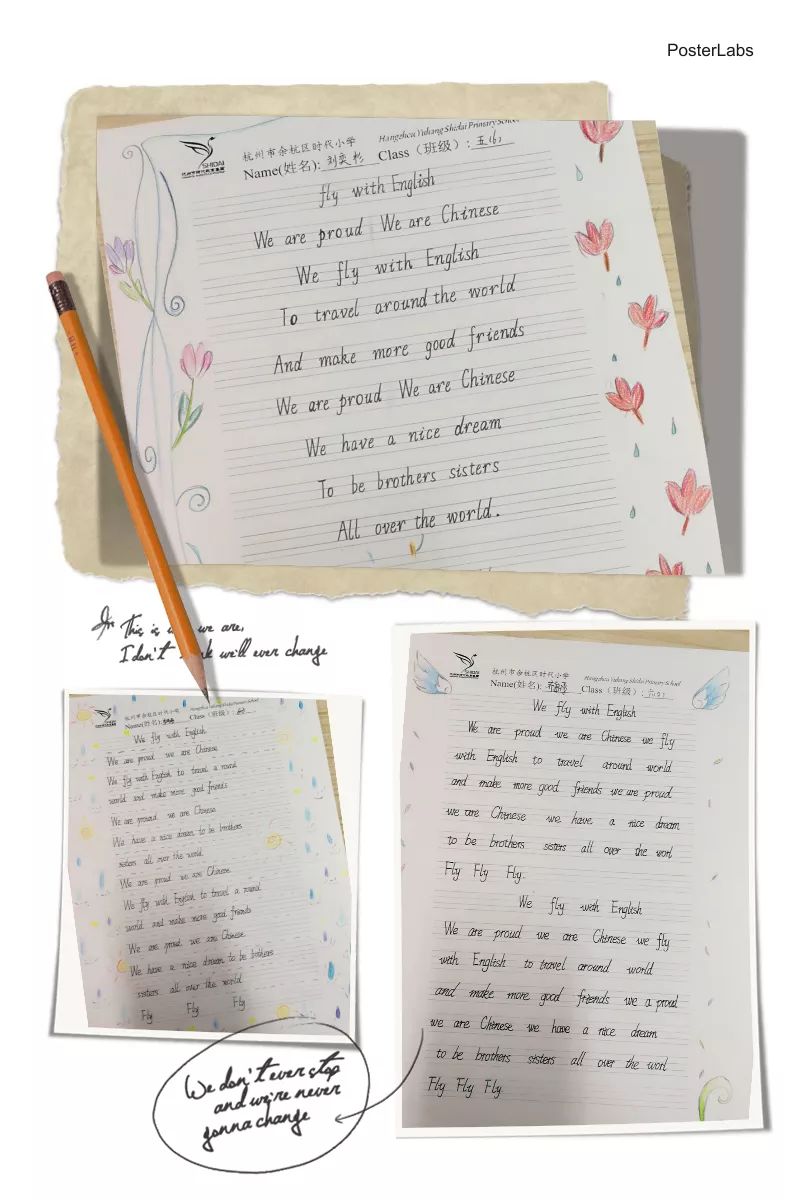 PosterLabs
SHIDAI
杭州市余杭区时代小学
Hangzhou Yuhang Shidai Primary School
Name(姓名): 刘奕杉 Class（班级）: 五(6)
fly with English
We are proud We are Chinese
We fly with English
To travel around the world
And make more good friends
We are proud We are Chinese
We have a nice dream
To be brothers sisters
All over the world.
This is we are,
I don't we'll ever change
杭州市余杭区时代小学
Hangzhou Yuhang Shidai Primary School
Name(姓名): Class（班级）:
We fly with English
We are proud we are Chinese
We fly with English to travel a round
world and make more good friends
We are proud we are Chinese
We have a nice dream to be brothers
sisters all over the world.
We are proud we are Chinese
We fly with English to travel a round
world and make more good friends
We are proud we are Chinese
We have a nice dream to be brothers
sisters all over the world
Fly Fly Fly
SHIDAI
杭州市余杭区时代小学
Hangzhou Yuhang Shidai Primary School
Name(姓名): Class（班级）:
We fly with English
We are proud we are Chinese we fly
with English to travel around world
and make more good friends we are proud
we are Chinese we have a nice dream
to be brothers sisters all over the worl
Fly Fly Fly.
We fly with English
We are proud we are Chinese we fly
with English to travel around world
and make more good friends we a proud
we are Chinese we have a nice dream
to be brothers sisters all over the worl
Fly Fly Fly
We don't ever stop
and we're never
gonna change